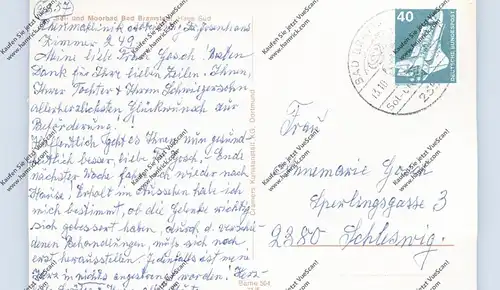 Sol- und Moorbad Bad Bramstedt, Haus Süd
Rheumaklinik
Zimmer 249
Meine liebe Frau Gosch! Besten
Dank für Ihre lieben Zeilen. Ihnen,
Ihrer Tochter & Ihrem Schwiegersohn
allerherzlichsten Glückwunsch zur
Beförderung!
Hoffentlich geht es Ihnen nun gesund-
heitlich besser, liebe Frau Gosch. Ende
nächster Woche fahre ich wieder nach
Hause. Erholt im Aussehen habe ich
mich bestimmt, ob die Gelenke wichtig
sich gebessert haben, durch d. verschie-
denen Behandlungen, muß sich noch
erst herausstellen. Jedenfalls ist mein
Herz in nichts angestrengt worden. Herz-
40
DEUTSCHE BUNDESPOST
BAD BRAMSTEDT
Frau
Annemarie Gosch
Sperlingsgasse 3
2380 Schleswig.
Kaufen Sie jetzt VueScan!
www.hamrick.com